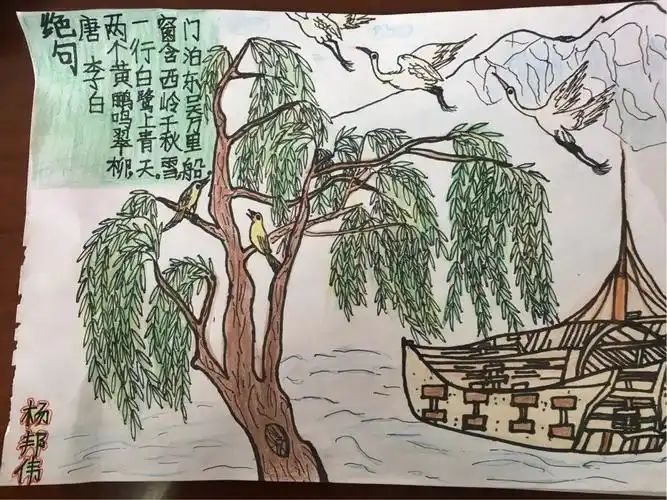 绝句
唐 李白
两个黄鹂鸣翠柳,
一行白鹭上青天.
窗含西岭千秋雪。
门泊东吴万里船
杨邦伟